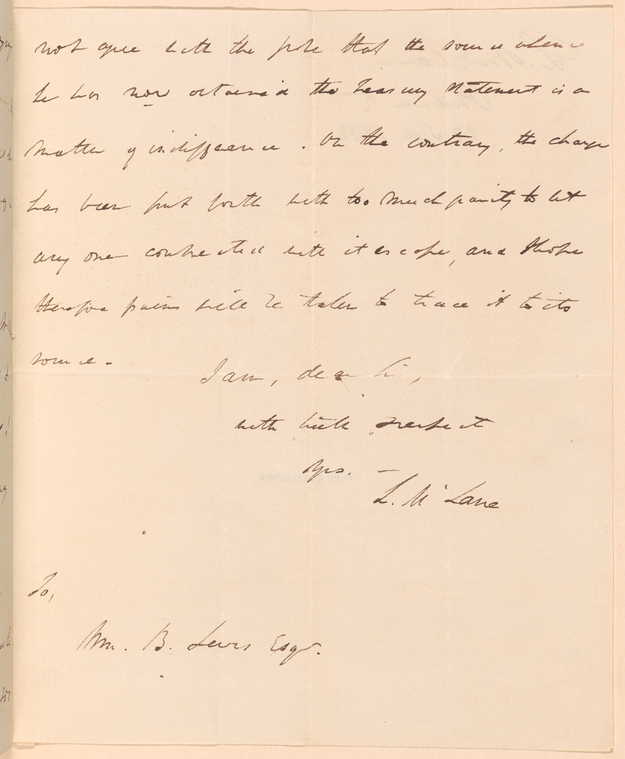 not agree with the that the source whence
he has now obtained the Treasury statement is a
matter of indifference. On the contrary, the charge
has been put forth with too much to let
any one connected with it escape, and I hope
therefore pains will be taken to trace it to its
source.
I am, dear Sir,
with respect
Yrs. -
L. McLane
To,
Wm. B. Lewis Esqr.